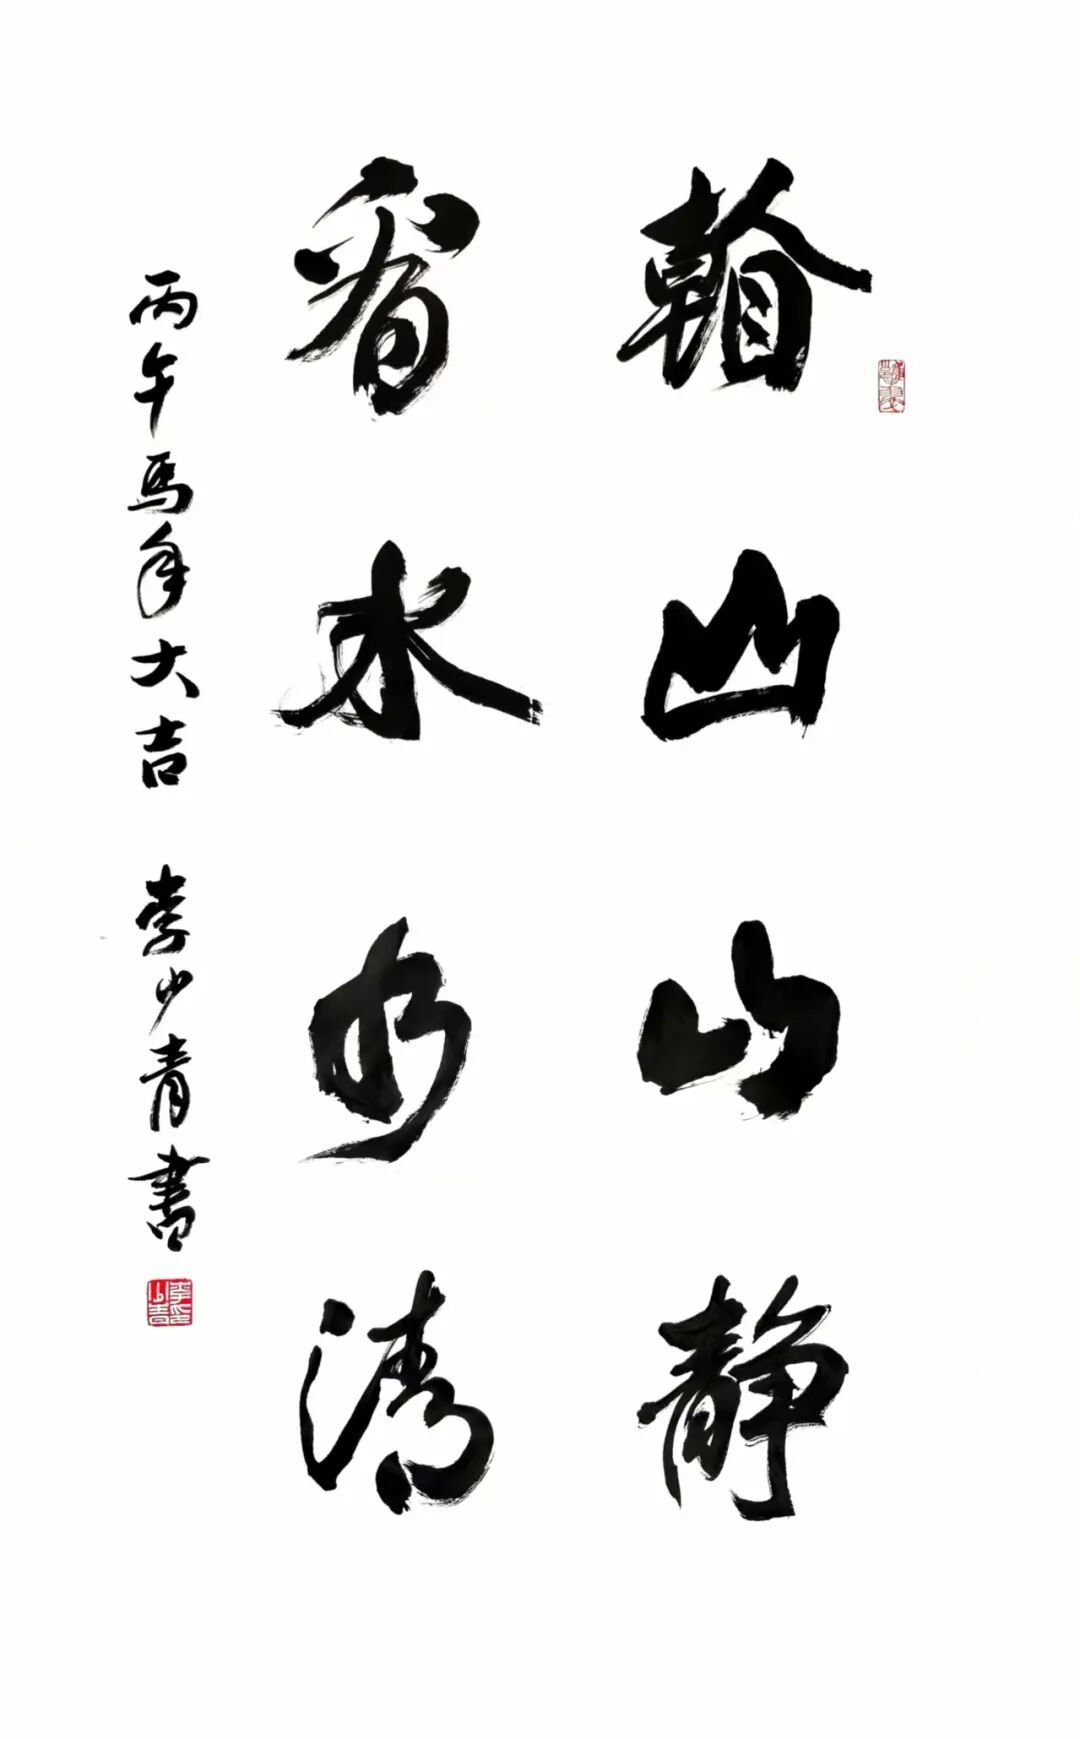 山山静
看水水清
丙午马年大吉 李少青書